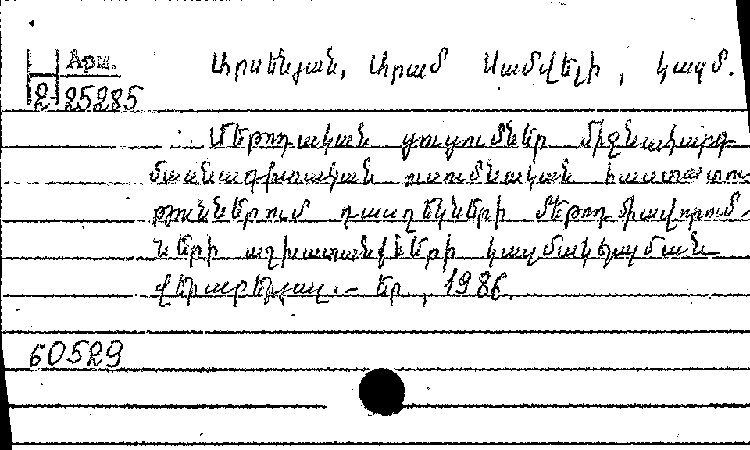 Արս.
Արսենյան, Արամ Սամվելի, կազմ.
2-25285
Մեթոդական ցուցումներ միջնակարգ
մասնագիտական ուսումնական հաստատու-
թյուններում դասղեկների մեթոդ միավորում-
ների աշխատանքների կազմակերպման
վերաբերյալ.— Եր., 1986.
60529